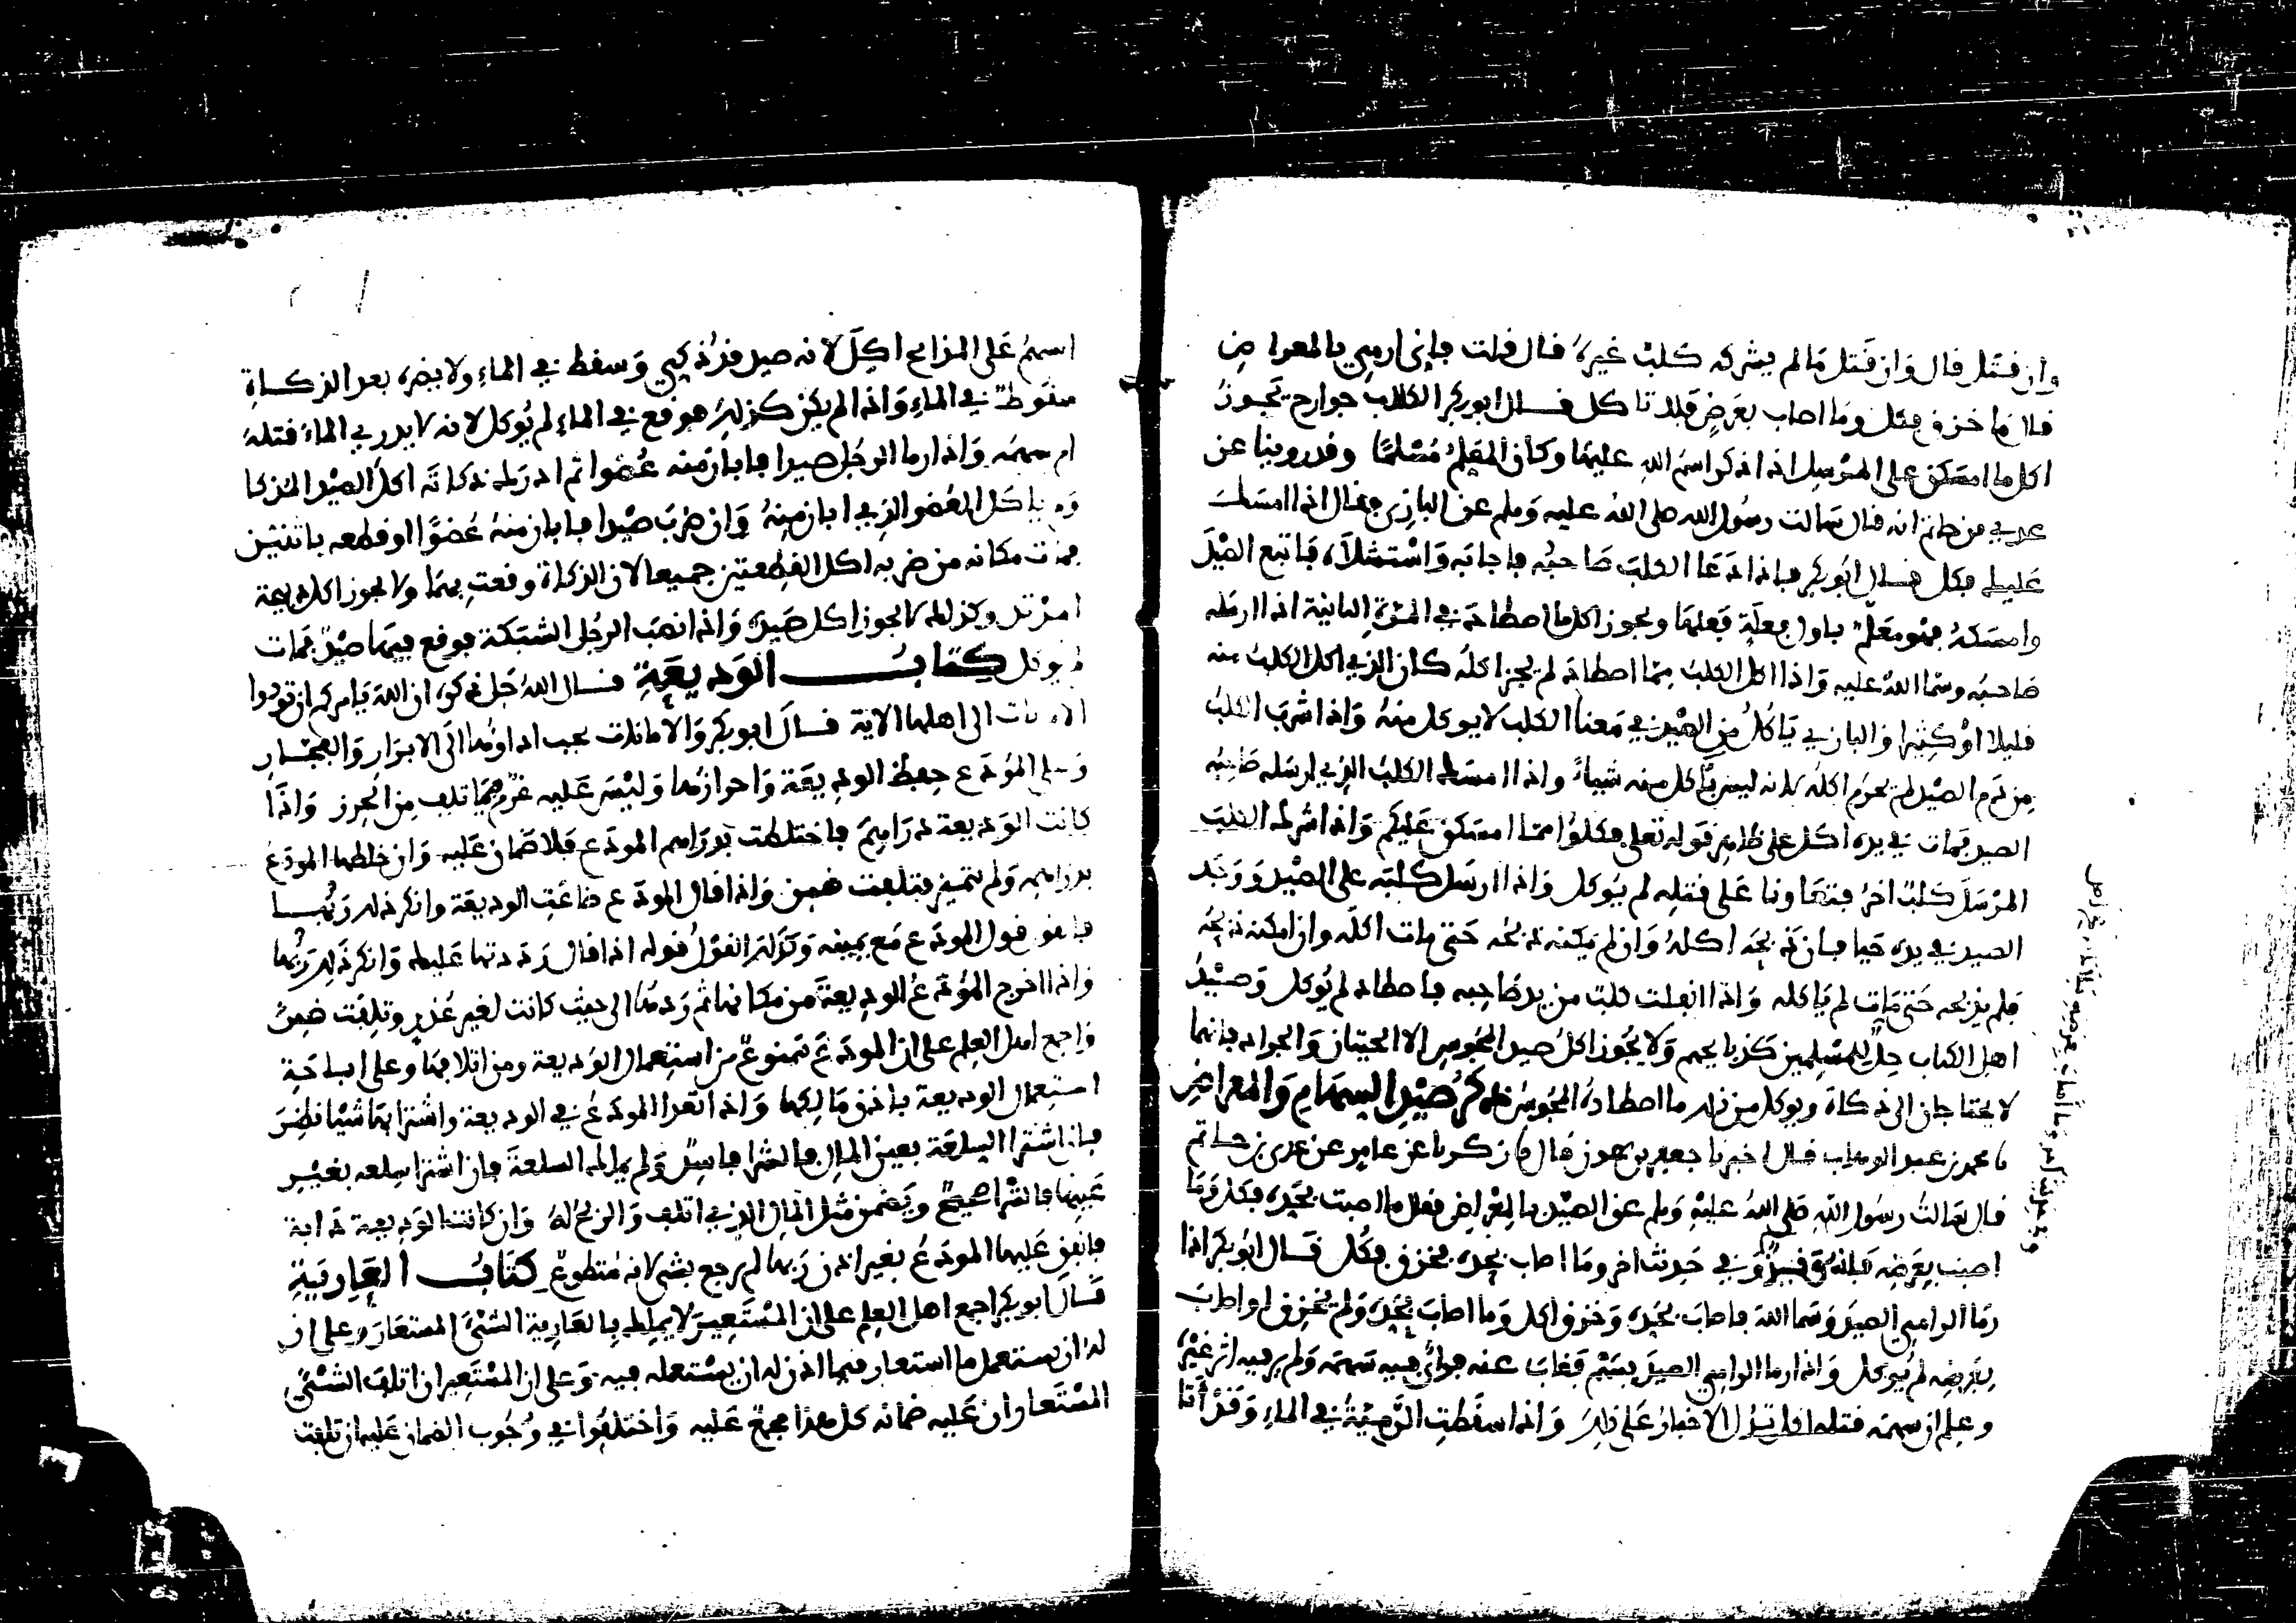 وان قتل قال وان قتل ما لم يشركه كلب غيره قال قلت فإني ارمي بالمعراض
قال ما خزق فكل وما اصاب بعرض فلا تاكل قال ابو بكر الكلاب جوارح يجوز
اكل ما امسكن على المرسل اذا ذكر اسم الله عليها وكان المعلم مسلما وقد روينا عن
عدي بن حاتم انه قال سالت رسول الله صلى الله عليه وسلم عن البازي فقال اذا امسك
عليك فكل قال ابو بكر فاذا دعا الكلب صاحبه فاجابه واستشلاه فاتبع الصيد
وامسكه فهو معلم باول فعلة فعلها ويجوز اكل ما اصطاده في المرة الثانية اذا ارسله
صاحبه وسما الله عليه واذا اكل الكلب مما اصطاد لم يجز اكله كان الذي اكل الكلب منه
قليلا او كثيرا والبازي ياكل من الصيد في معنا الكلب لا يوكل منه واذا شرب الكلب
من دم الصيد لم يحرم اكله لانه ليس باكل منه شيا واذا امسك الكلب الذي ارسله صاحبه
الصيد فمات في يده اكل على ظاهر قوله تعلى فكلوا مما امسكن عليكم واذا شرك الكلب
المرسل كلب اخر فتعاونا على قتله لم يوكل واذا ارسل كلبه على الصيد ووجد
الصيد في يده حيا فان ذبحه اكله وان لم يمكنه ذبحه حتى مات اكله وان امكنه ذبحه
فلم يذبحه حتى مات لم ياكله واذا انفلت كلب من يد صاحبه فاصطاد لم يوكل وصيد
اهل الكتاب حل للمسلمين كذبايحهم ولا يجوز اكل صيد المجوس الا الحيتان والجراد فانهما
لا يحتاجان الى ذكاة ويوكل من ذلك ما اصطاده المجوس ذكر صيد السهام والمعراض
نا محمد بن عبد الوهاب قال اخبرنا جعفر بن عون قال نا زكريا عن عامر عن عدي بن حاتم
قال سالت رسول الله صلى الله عليه وسلم عن الصيد بالمعراض فقال ما اصبت بحده فكل وما
اصبت بعرضه فانه وقيذ وفي حديث اخر وما اصاب بحده فخزق فكل قال ابو بكر اذا
رما الرامي الصيد وسما الله فاصاب بحده وخزق اكل وما اصاب بحده ولم يخزق او اصاب
بعرضه لم يوكل واذا رما الرامي الصيد بسهم فغاب عنه فوافى فيه سهمه ولم ير فيه اثر غيره
وعلم ان سهمه قتله اكله تدل الاخبار على ذلك واذا سقطت الرمية في الماء وقد اتا
اسمه على المذابح اكل لانه صيد قد ذكي وسقط في الماء ولا يضره بعد الزكاة
سقوط في الماء واذا لم يكن كذلك فوقع في الماء لم يوكل لانه لا يدري الماء قتله
ام سهمه واذا رما الرجل صيدا فابان منه عضوا ثم ادرك ذكاته اكل الصيد المذكا
ولا ياكل العضو الذي ابان منه وان ضرب صيدا فابان منه عضوا او قطعه باثنتين
فمات مكانه من ضربه اكل القطعتين جميعا لان الزكاة وقعت بهما ولا يجوز اكل ذبيحة
المرتد وكذلك لا يجوز اكل صيده واذا نصب الرجل الشبكة فوقع فيها صيد فمات
لم يوكل كتاب الوديعة قال الله جل ذكره ان الله يامركم ان تودوا
الامانات الى اهلها الاية قال ابو بكر والامانات يجب اداوها الى الابرار والفجار
وعلى المودع حفظ الوديعة واحرازها وليس عليه غرم فيما تلف من الحرز واذا
كانت الوديعة دراهم فاختلطت بدراهم المودع فلا ضمان عليه وان خلطها المودع
بدراهمه ولم تتميز فتلفت ضمن واذا قال المودع ضاعت الوديعة وانكر ذلك ربها
فالقول قول المودع مع يمينه وكذلك القول قوله اذا قال رددتها عليك وانكر ذلك ربها
واذا اخرج المودع الوديعة من مكانها ثم ردها الى حيث كانت لغير عذر وتلفت ضمن
واجمع اهل العلم على ان المودع ممنوع من استعمال الوديعة ومن اتلافها وعلى اباحة
استعمال الوديعة باذن مالكها واذا تعدا المودع في الوديعة واشترا بها شيا نظر
فان اشترا السلعة بعين المال فالشرا فاسد ولم يملك السلعة فان اشترا سلعه بغير
عينها فالشرا صحيح ويضمن مثل المال الذي اتلف والربح له وان كانت الوديعة دابة
فانفق عليها المودع بغير اذن ربها لم يرجع بشي لانه متطوع كتاب العارية
قال ابو بكر اجمع اهل العلم على ان المستعير لا يملك بالعارية الشيء المستعار وعلى ان
له ان يستعمل ما استعار فيما اذن له ان يستعمله فيه وعلى ان المستعير ان اتلف الشيء
المستعار ان عليه ضمانه كل هذا مجمع عليه واختلفوا في وجوب الضمان عليه ان تلفت